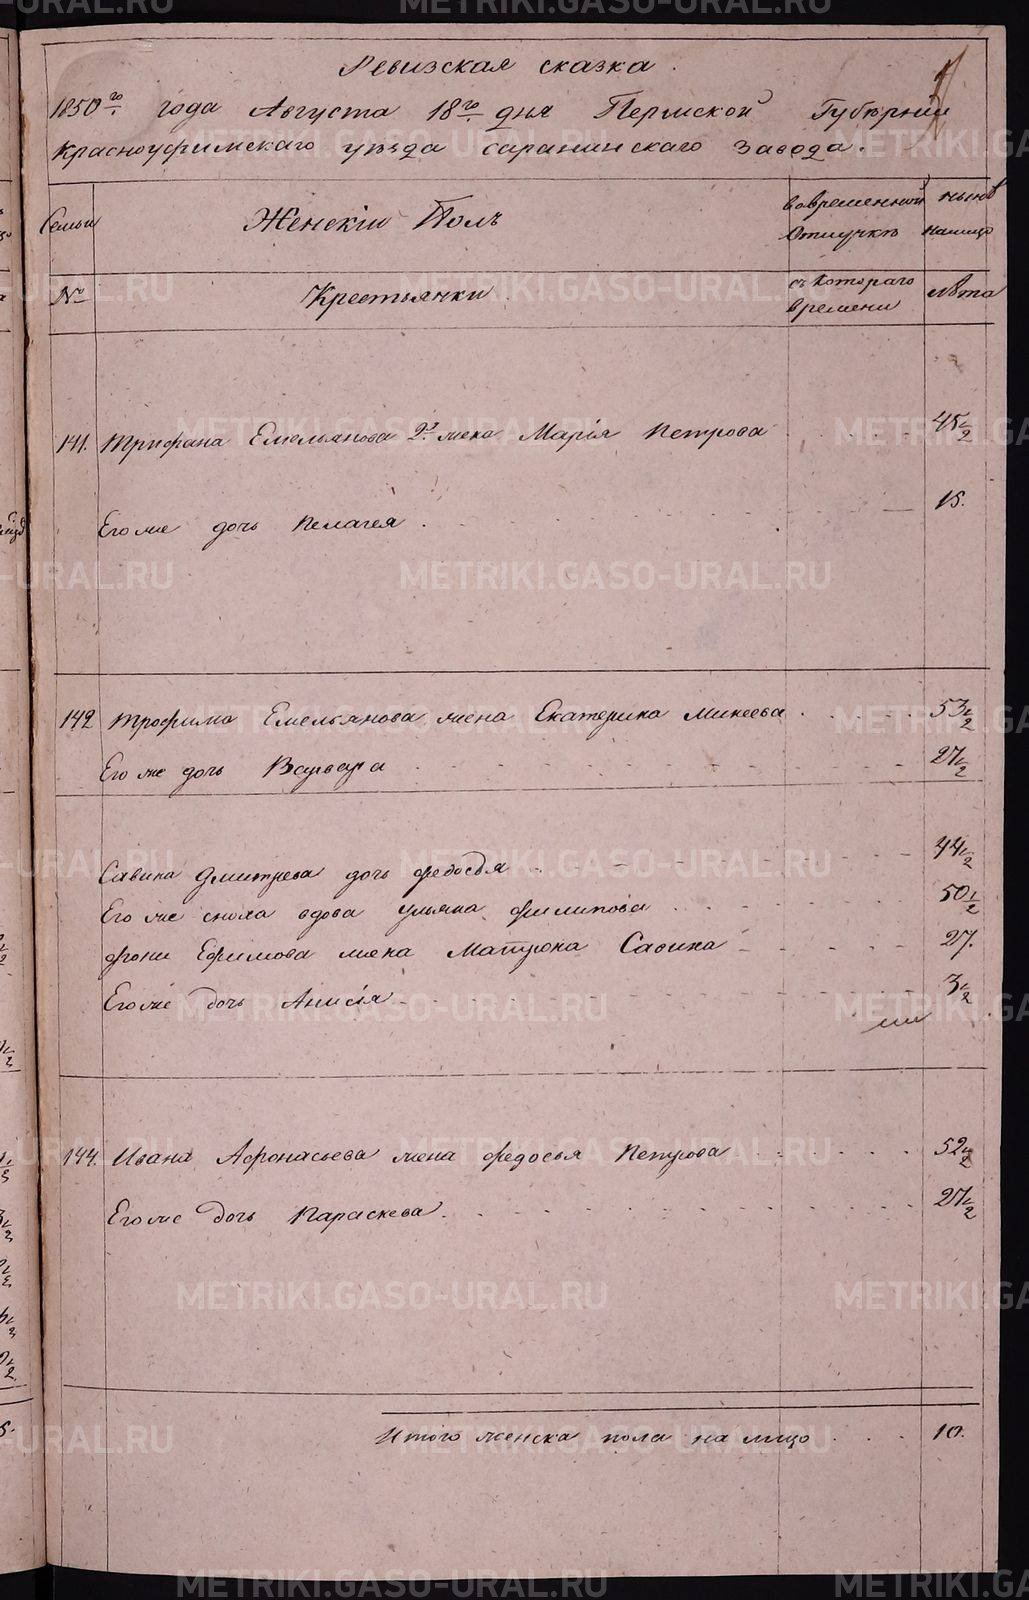 Ревизская сказка.
1850го года Августа 18го дня Пермской Губернии
Красноуфимскаго уезда саранинскаго завода.
Семьи Женскій Полъ вовременной Отлучкѣ нынѣ налицо
№ Крестьянки. съ Котораго времени лѣта
141. Трифана Емельянова 2я жена Марія Петрова 45 1/2
Его же дочь Пелагея 15.
142 Трофима Емельянова жена Екатерина Микеева 53 1/2
Его же дочь Варвара 27 1/2
Савина Дмитрева дочь федосья 44 1/2
Его же сноха вдова ульяна филипова 50 1/2
фрони Ефимова жена Матрона Савина 27.
Его же дочь Анисья 3 1/2
144. Ивана Афонасьева жена федосья Петрова 52 1/2
Его же дочь Параскева 27 1/2
Итого женска пола на лицо 10.
METRIKI.GASO-URAL.RU